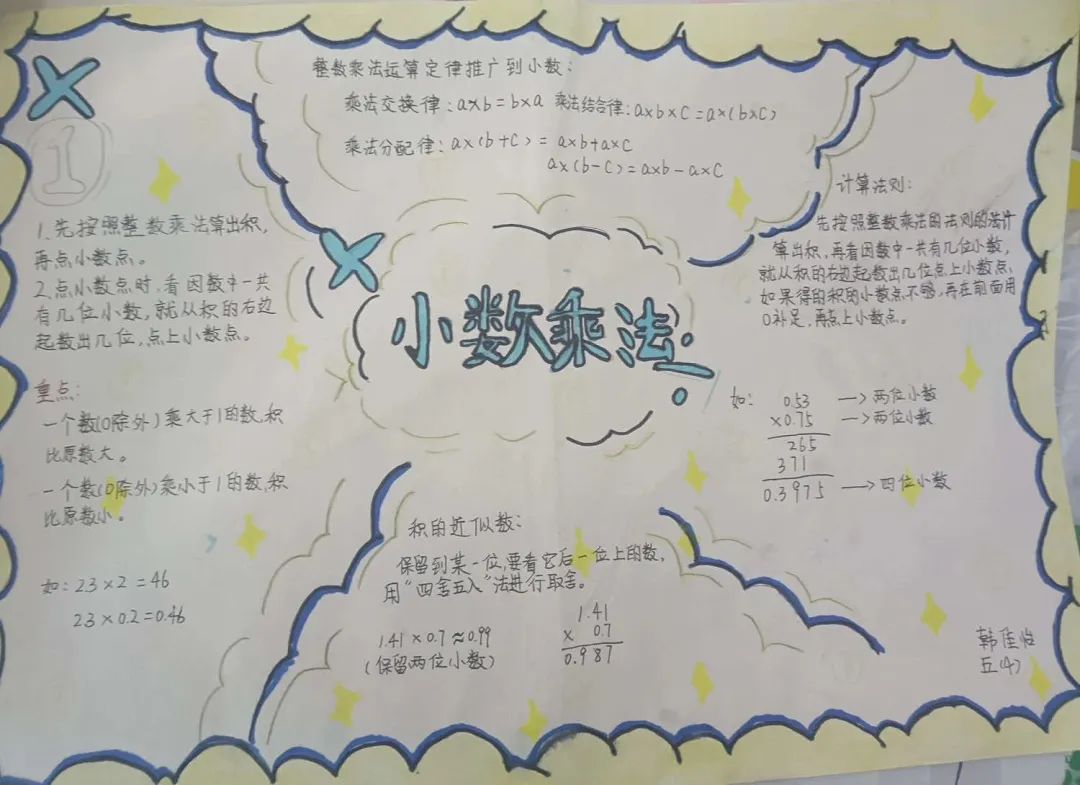 整数乘法运算定律推广到小数：
乘法交换律：a×b=b×a 乘法结合律：a×b×c=a×(b×c)
乘法分配律：a×(b+c)=a×b+a×c
a×(b-c)=a×b-a×c
×
1
1.先按照整数乘法算出积，
再点小数点。
2.点小数点时，看因数中一共
有几位小数，就从积的右边
起数出几位，点上小数点。
重点：
一个数(0除外)乘大于1的数，积
比原数大。
一个数(0除外)乘小于1的数，积
比原数小。
如：23×2=46
23×0.2=0.46
×
小数乘法
÷
计算法则：
先按照整数乘法的法则的
算出积，再看因数中一共有几位小数，
就从积的右边起数出几位点上小数点，
如果得的积的小数点不够，再在前面用
0补足，再点上小数点。
如： 0.53 → 两位小数
×0.75 → 两位小数
265
371
0.3975 → 四位小数
积的近似数：
保留到某一位，要看它后一位上的数，
用“四舍五入”法进行取舍。
1.41×0.7≈0.99
(保留两位小数)
1.41
× 0.7
0.987
韩佳怡
五(4)